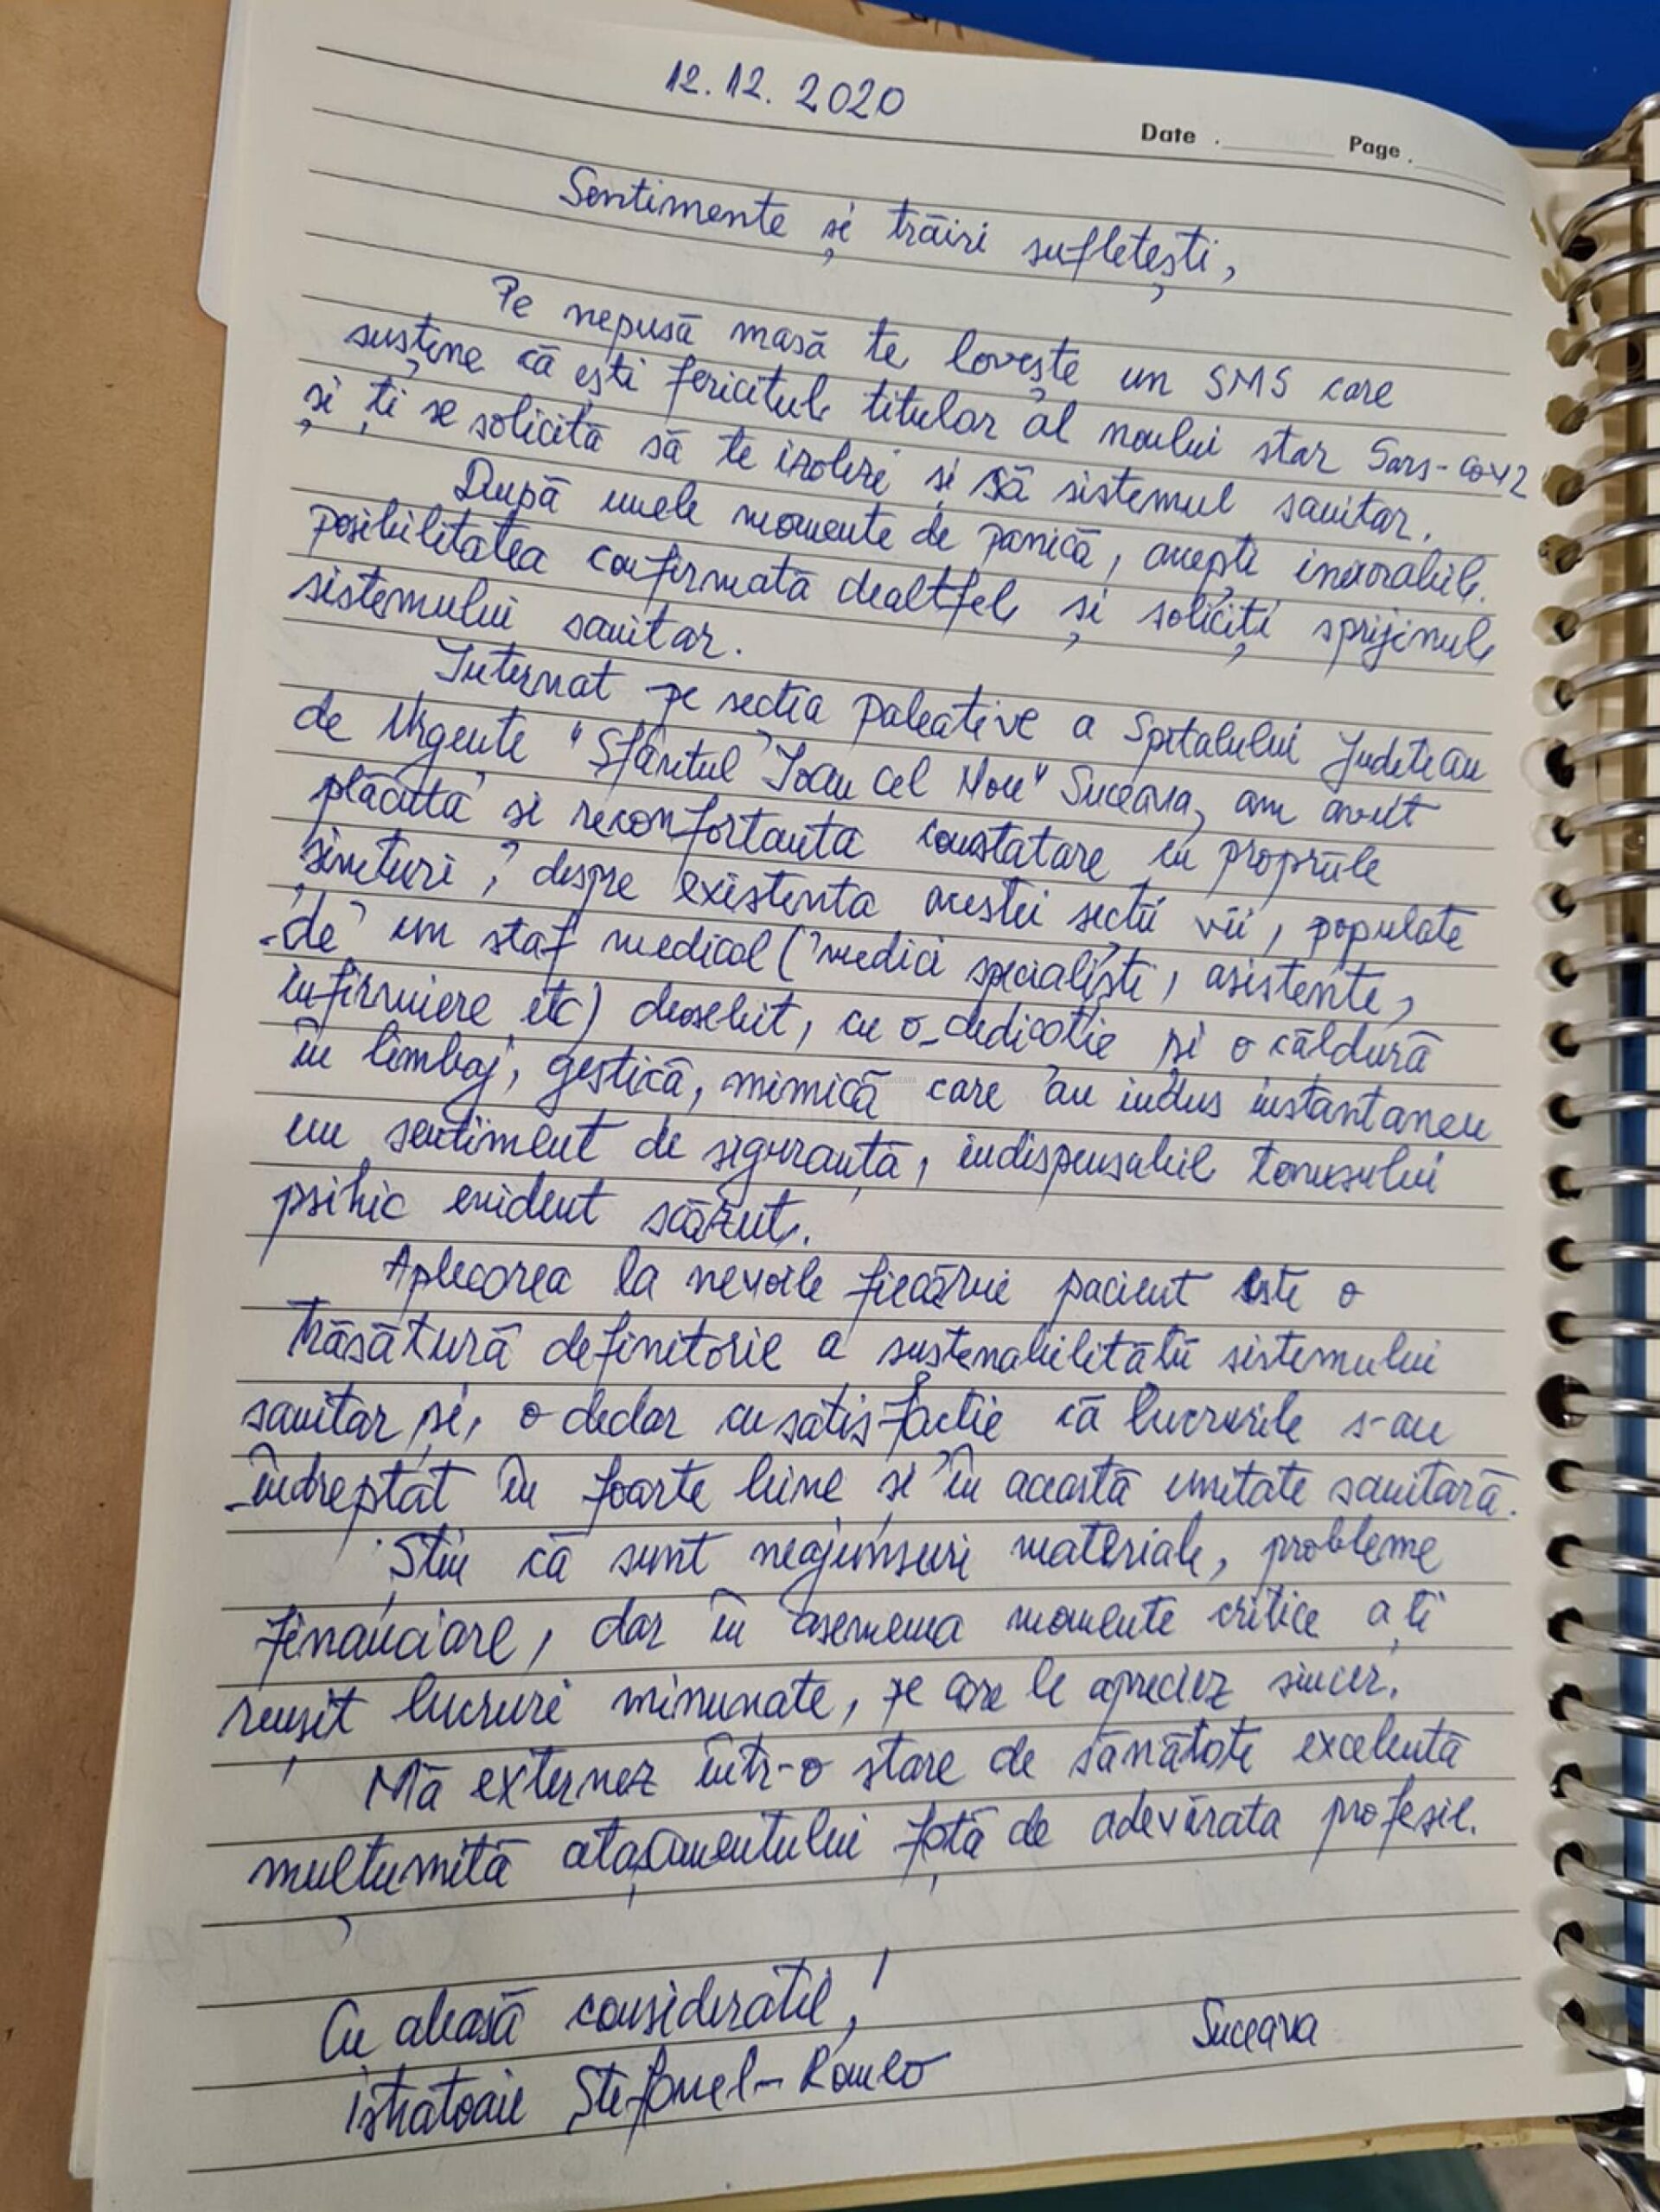 12.12.2020
Date . Page .
Sentimente și trăiri sufletești,
Pe nepusă masă te lovește un SMS care
susține că ești fericitul titular al noului star Sars-Cov2
și ți se solicită să te izolezi și să sistemul sanitar.
După unele momente de panică, accepți inexorabile
posibilitatea confirmată dealtfel și soliciți sprijinul
sistemului sanitar.
Internat pe secția paleative a Spitalului Județean
de Urgențe "Sfântul Ioan cel Nou" Suceava, am avut
plăcuta și reconfortanta constatare cu propriile
simțuri, despre existența acestei secții vii, populate
de un staf medical (medici specialiști, asistente,
infirmiere etc) deosebit, cu o dedicație și o căldură
în limbaj, gestică, mimică care au indus instantaneu
un sentiment de siguranță, indispensabil tonusului
psihic evident scăzut.
Aplecarea la nevoile fiecărui pacient este o
trăsătură definitorie a sustenabilității sistemului
sanitar și, o declar cu satisfacție că lucrurile s-au
îndreptat în foarte bine și în această unitate sanitară.
Știu că sunt neajunsuri materiale, probleme
financiare, dar în asemenea momente critice ați
reușit lucruri minunate, pe care le apreciez sincer.
Mă externez într-o stare de sănătate excelentă
mulțumită atașamentului față de adevărata profesie.
Cu aleasă considerație,!
Suceava
Istratoaie Ștefănel-Romeo